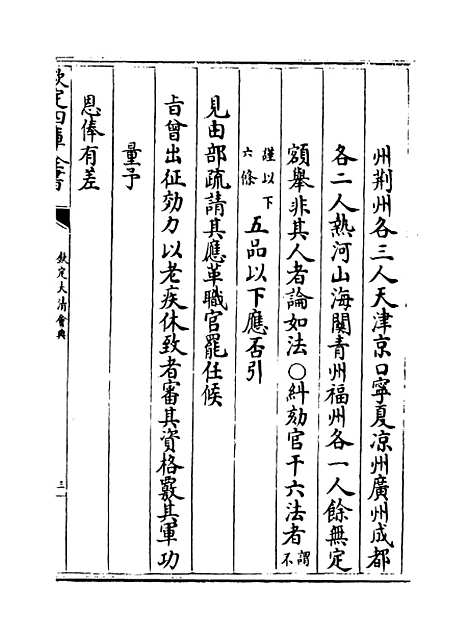 州荆州各三人天津京口寧夏凉州廣州成都
各二人熱河山海關青州福州各一人餘無定
額舉非其人者論如法○糾劾官干六法者謂不
謹以下六條五品以下應否引
見由部疏請其應革職官罷任候
旨曾出征効力以老疾休致者審其資格覈其軍功
量予
恩俸有差
欽定四庫全書
欽定大清會典
三一